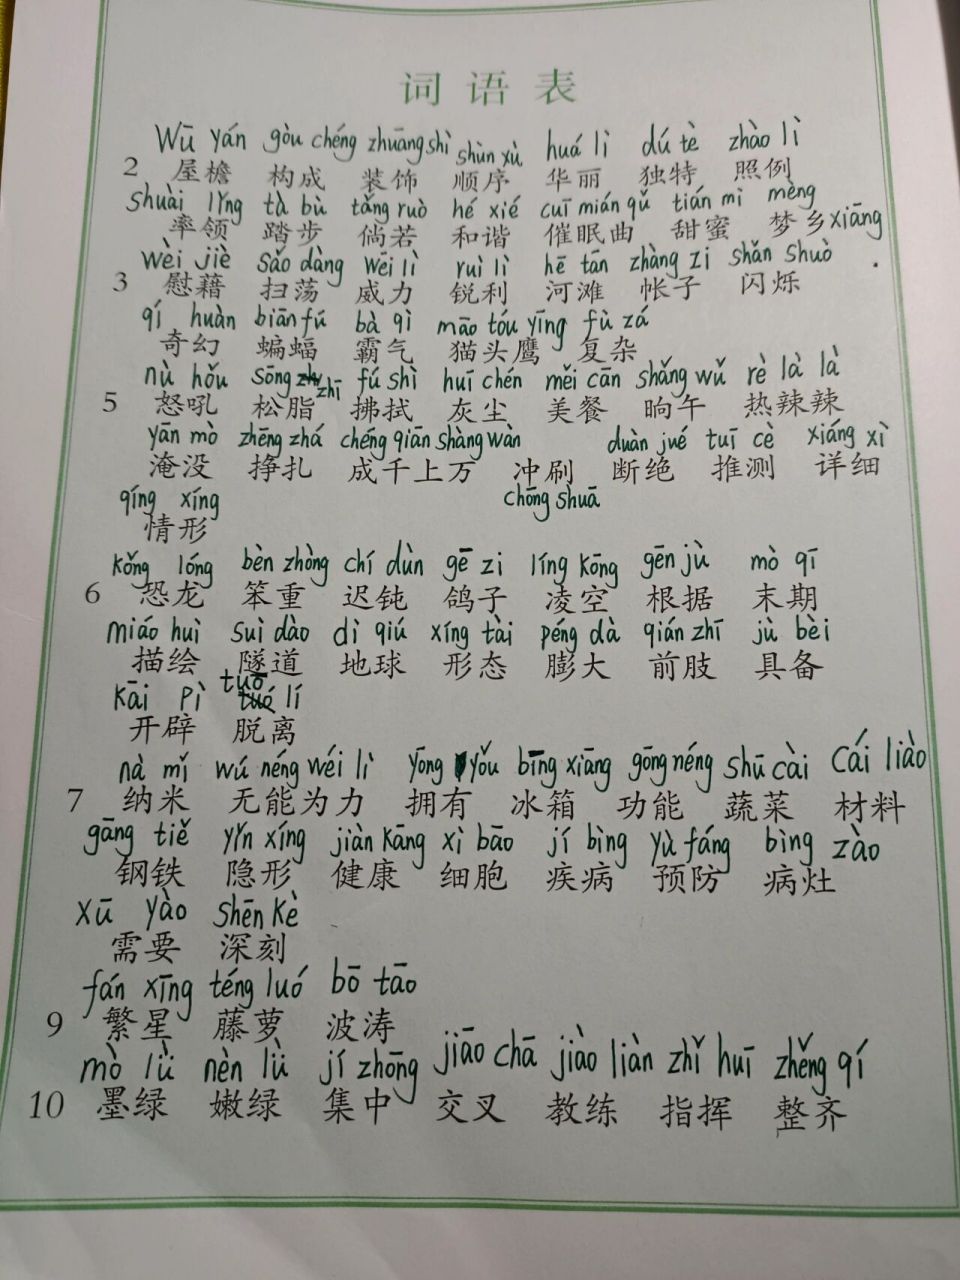 词语表
Wū yán gòu chéng zhuāng shì shùn xù huá lì dú tè zhào lì
2 屋檐 构成 装饰 顺序 华丽 独特 照例
shuài lǐng tà bù tǎng ruò hé xié cuī mián qǔ tián mì mèng
率领 踏步 倘若 和谐 催眠曲 甜蜜 梦乡 xiāng
wèi jiè sǎo dàng wēi lì ruì lì hē tān zhàng zi shǎn shuò
3 慰藉 扫荡 威力 锐利 河滩 帐子 闪烁
qí huàn biān fú bà qì māo tóu yīng fù zá
奇幻 蝙蝠 霸气 猫头鹰 复杂
nù hǒu sōng zhī fú shì huī chén měi cān shǎng wǔ rè là là
5 怒吼 松脂 拂拭 灰尘 美餐 晌午 热辣辣
yān mò zhēng zhá chéng qiān shàng wàn duàn jué tuī cè xiáng xì
淹没 挣扎 成千上万 冲刷 断绝 推测 详细
qíng xíng chōng shuā
情形
kǒng lóng bèn zhòng chí dùn gē zi líng kōng gēn jù mò qī
6 恐龙 笨重 迟钝 鸽子 凌空 根据 末期
miáo huì suì dào dì qiú xíng tài péng dà qián zhī jù bèi
描绘 隧道 地球 形态 膨大 前肢 具备
kāi pì tuō lí
开辟 脱离
nà mǐ wú néng wéi lì yōng yǒu bīng xiāng gōng néng shū cài cái liào
7 纳米 无能为力 拥有 冰箱 功能 蔬菜 材料
gāng tiě yǐn xíng jiàn kāng xì bāo jí bìng yù fáng bìng zào
钢铁 隐形 健康 细胞 疾病 预防 病灶
xū yào shēn kè
需要 深刻
fán xīng téng luó bō tāo
9 繁星 藤萝 波涛
mò lǜ nèn lǜ jí zhōng jiāo chā jiào liàn zhǐ huī zhěng qí
10 墨绿 嫩绿 集中 交叉 教练 指挥 整齐